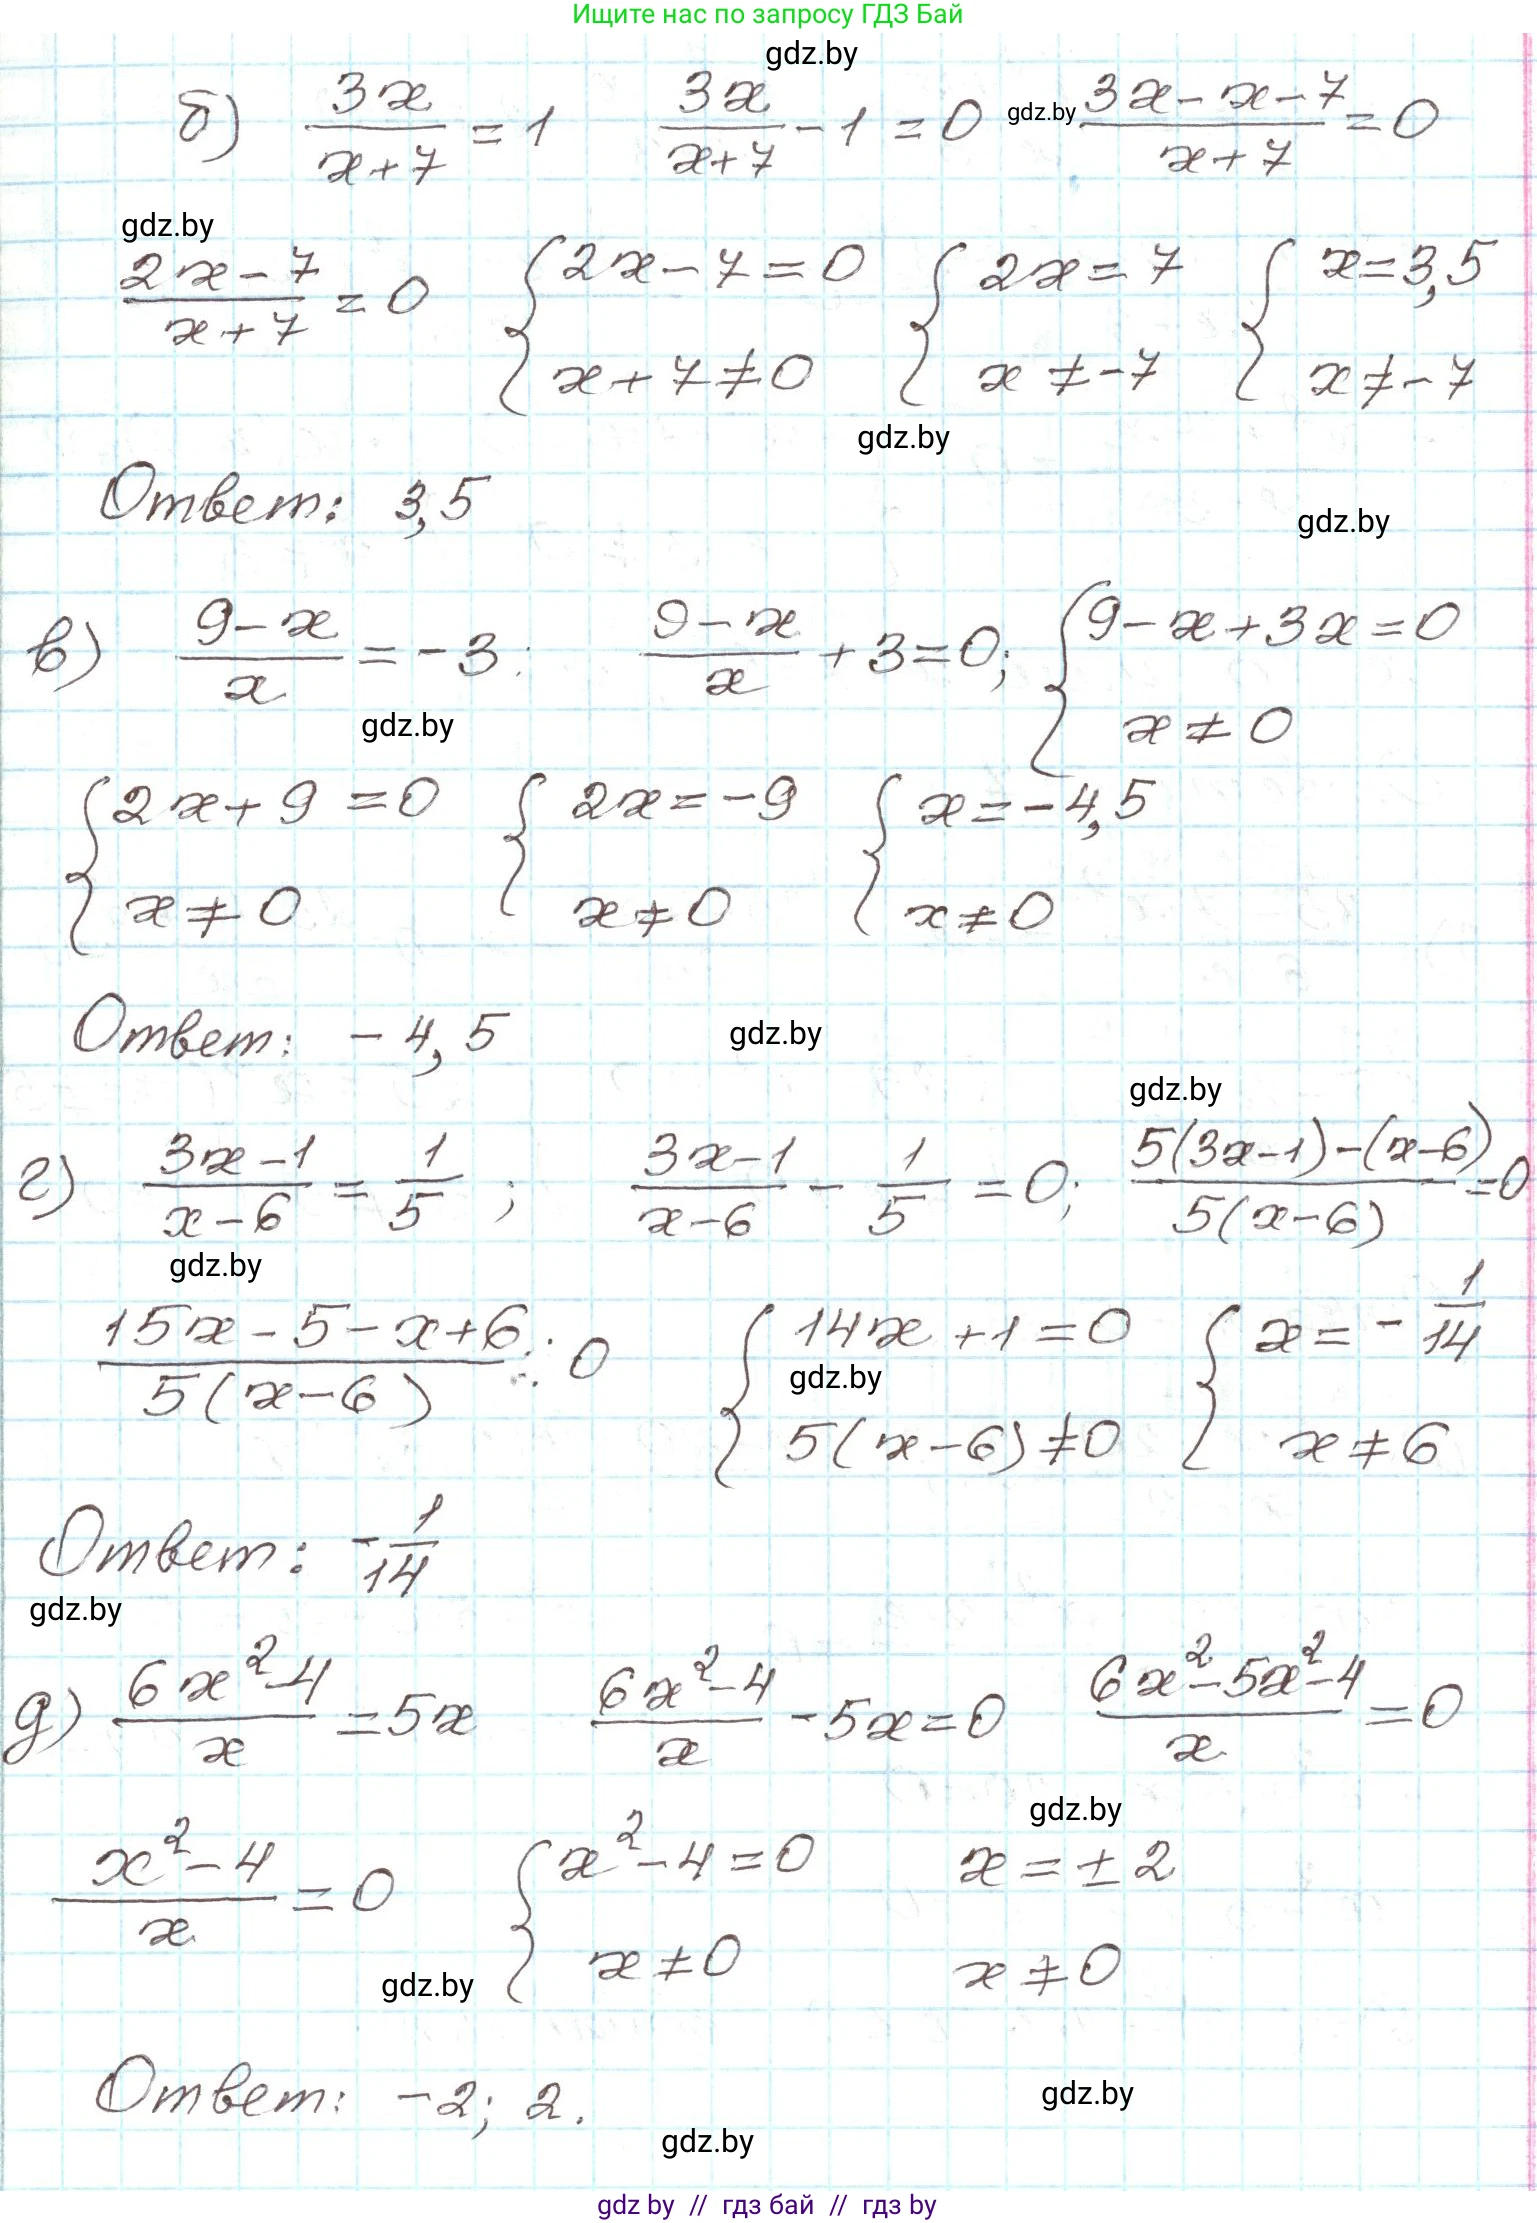 Ищите нас по запросу ГДЗ Бай
gdz.by
б) 3x/(x+7) = 1   3x/(x+7) - 1 = 0   gdz.by   (3x-x-7)/(x+7) = 0
gdz.by
(2x-7)/(x+7) = 0   { 2x-7=0   x+7≠0   { 2x=7   x≠-7   { x=3,5   x≠-7
gdz.by
Ответ: 3,5
gdz.by
в) (9-x)/x = -3;   (9-x)/x + 3 = 0;   { 9-x+3x=0   x≠0
gdz.by
{ 2x+9=0   x≠0   { 2x=-9   x≠0   { x=-4,5   x≠0
Ответ: -4,5   gdz.by
gdz.by
г) (3x-1)/(x-6) = 1/5 ;   (3x-1)/(x-6) - 1/5 = 0;   (5(3x-1)-(x-6))/(5(x-6)) = 0
gdz.by
(15x-5-x+6)/(5(x-6)) = 0   { 14x+1=0   5(x-6)≠0   { x=-1/14   x≠6
gdz.by
Ответ: -1/14
gdz.by
д) (6x²-4)/x = 5x   (6x²-4)/x - 5x = 0   (6x²-5x²-4)/x = 0
gdz.by
(x²-4)/x = 0   { x²-4=0   x≠0   x=±2   x≠0
gdz.by
Ответ: -2; 2.
gdz.by
gdz.by
gdz by // гдз бай // гдз by